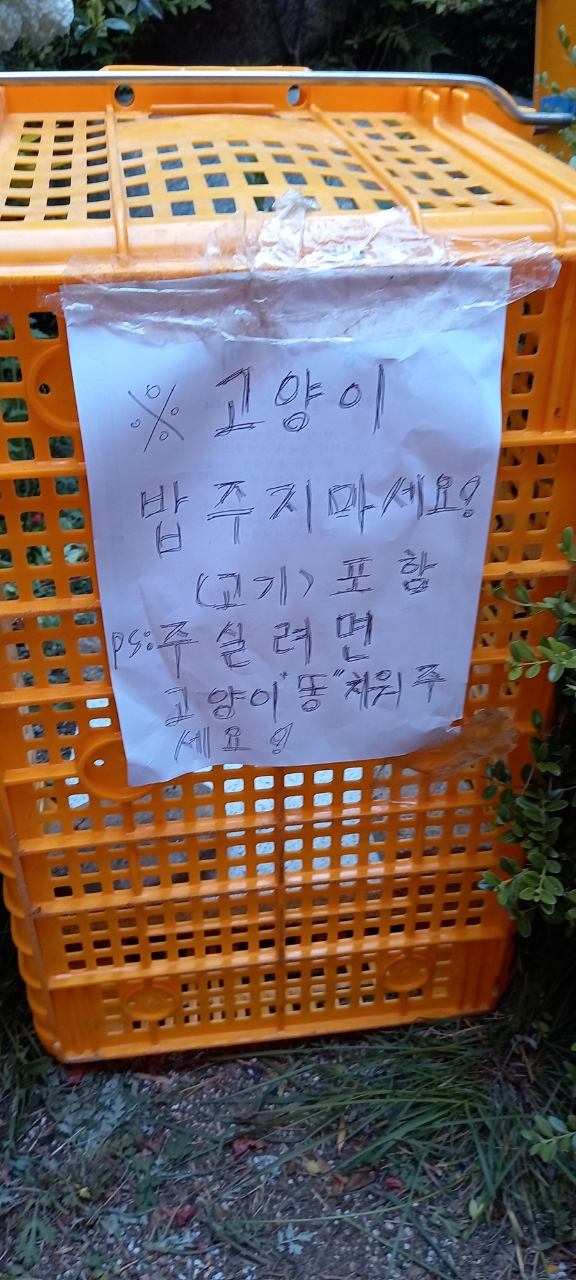 ※ 고양이
밥 주지마세요!
(고기) 포함
ps: 주실려면
고양이 "똥" 채워주
세요!